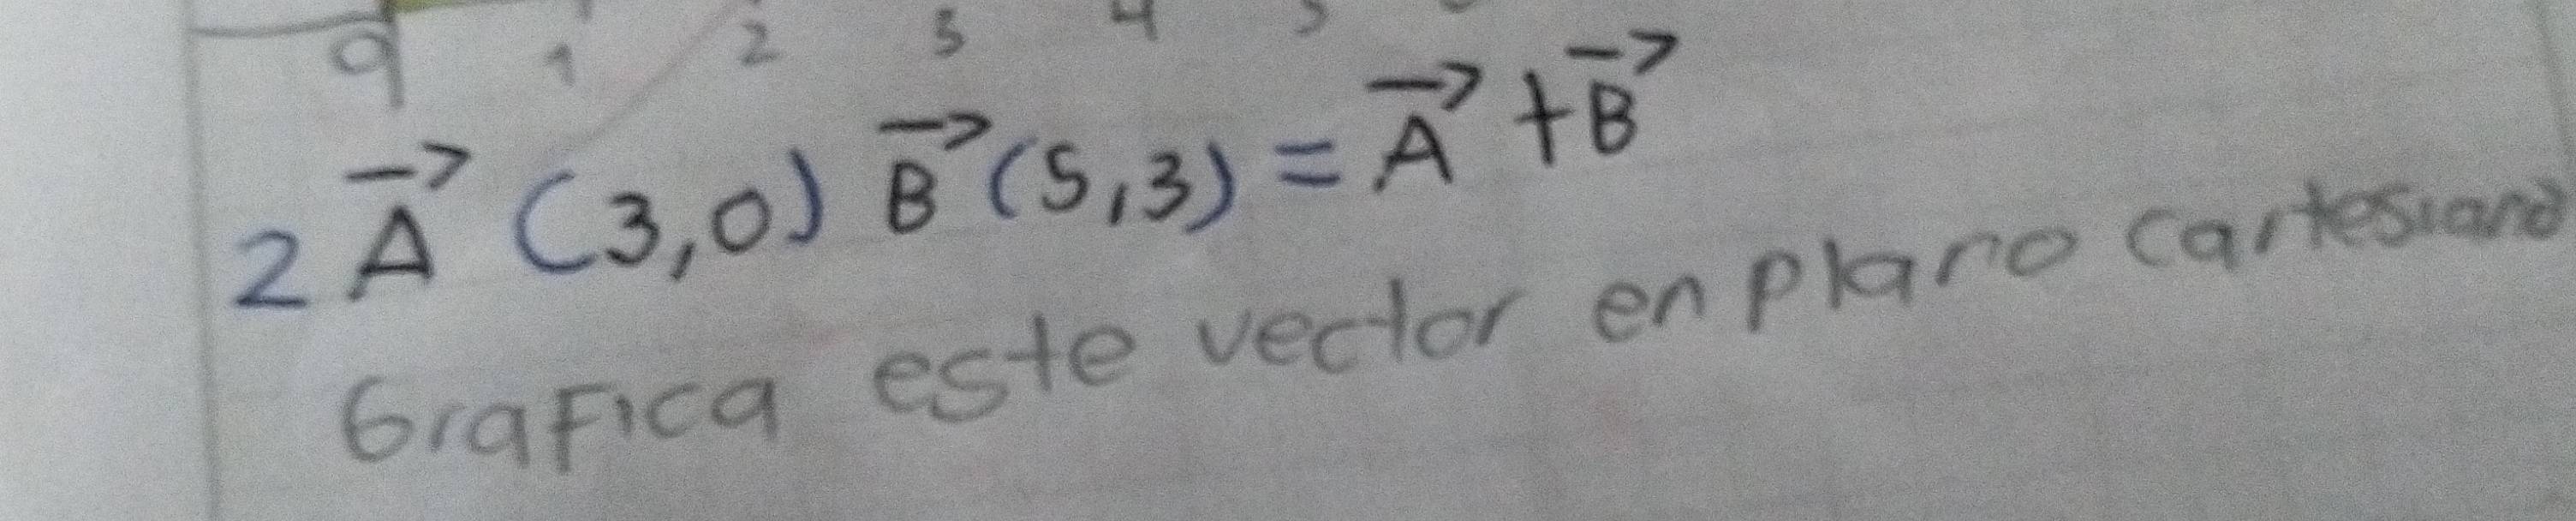 9 1 2 3 4 5
2 A⃗ (3,0) B⃗ (5,3) = A⃗ + B⃗
Grafica este vector en plano cartesiano